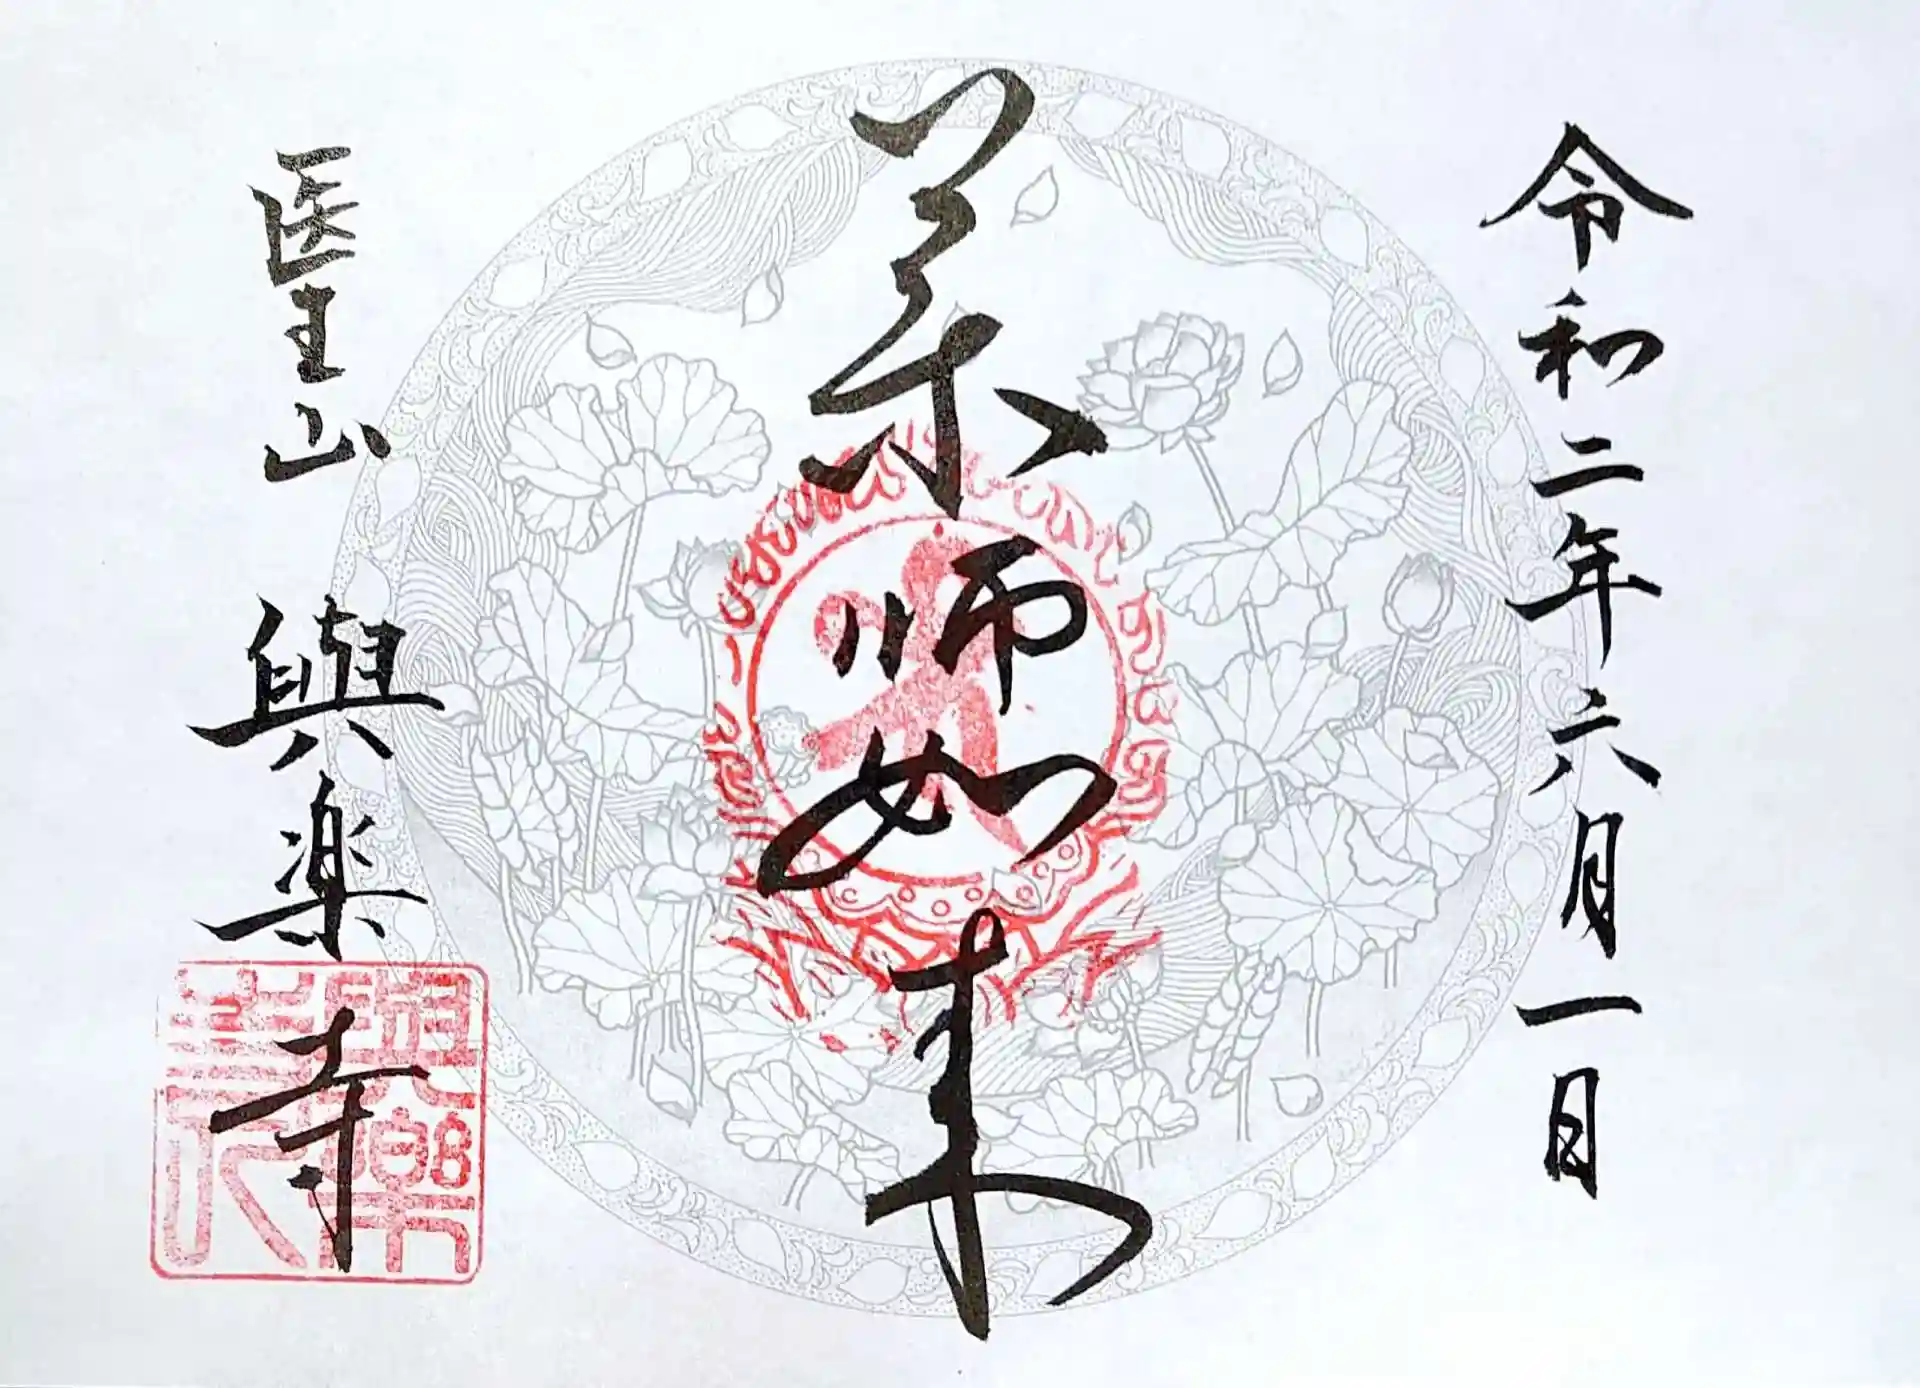 令和二年六月一日
薬師如来
医王山 與楽寺